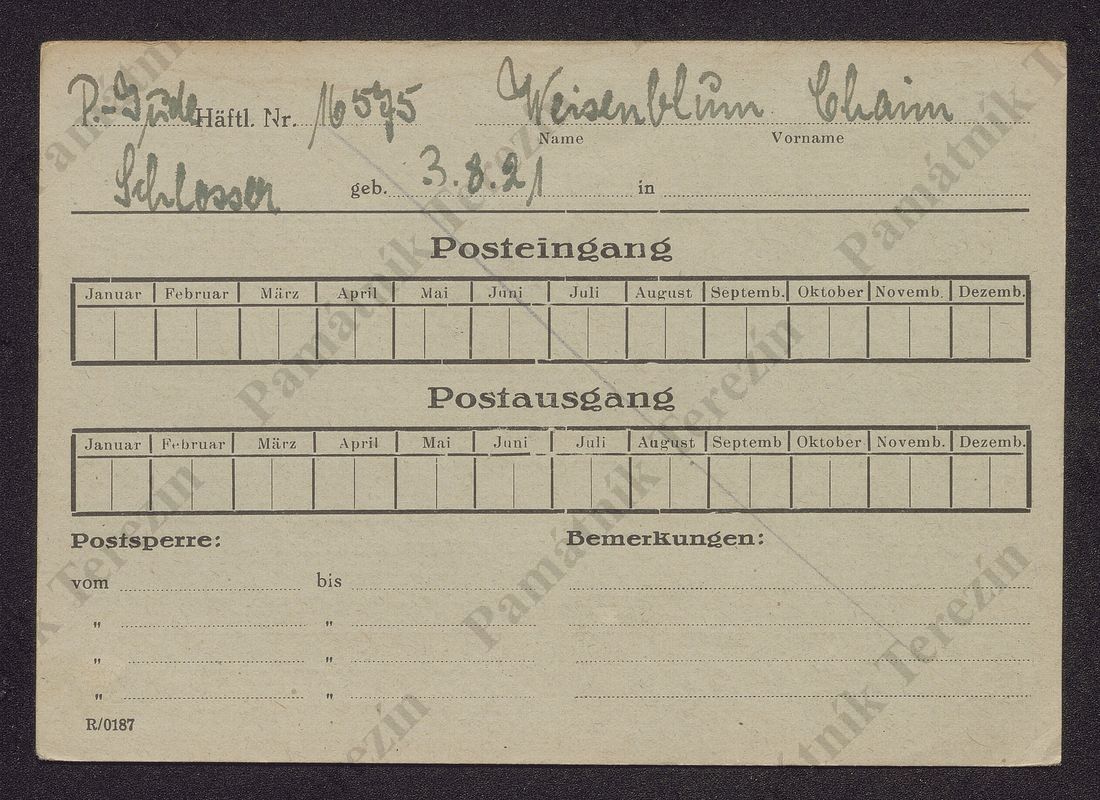 P.-Jude Häftl. Nr. 16575 Weisenblum Chaim
Name Vorname
Schlosser geb. 3.8.21 in
Posteingang
Januar Februar März April Mai Juni Juli August Septemb. Oktober Novemb. Dezemb.
Postausgang
Januar Februar März April Mai Juni Juli August Septemb Oktober Novemb. Dezemb.
Postsperre: Bemerkungen:
vom bis
" "
" "
" "
R/0187
Památník Terezín